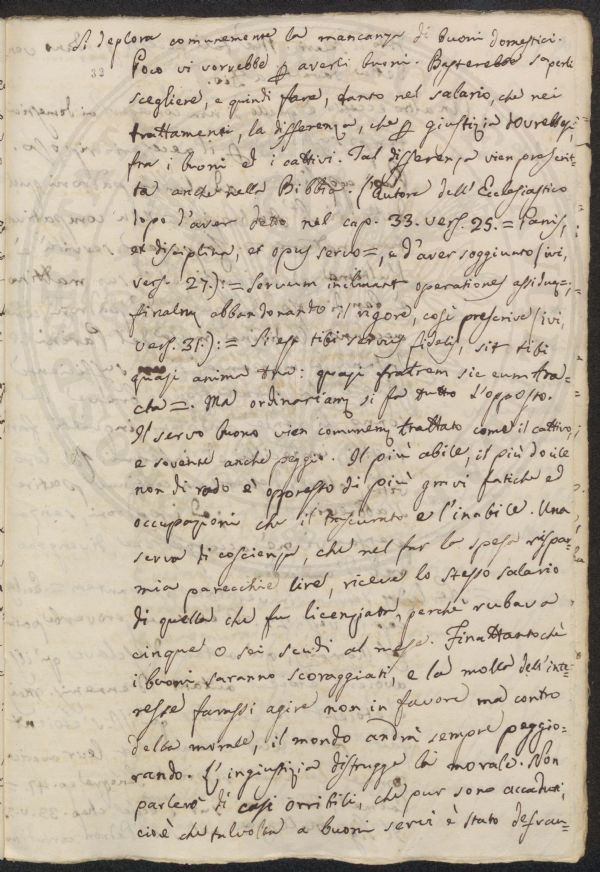 Si deplora comunemente la mancanza di buoni domestici.
32
Poco vi vorrebbe ꝑ averli buoni. Basterebbe saperli
scegliere, e quindi fare, tanto nel salario, che nei
trattamenti, la differenza, che ꝑ giustizia dovrebbesi
fra i buoni ed i cattivi. Tal differenza vien prescrit-
ta anche nella Bibbia. L'autore dell'Ecclesiastico
dopo d'aver detto nel cap. 33. vers. 25. = Panis,
et disciplina, et opus servo =, e d'aver soggiunto (ivi,
vers. 27.): = Servum inclinant operationes assiduę =;
finalmẽ abbandonando il rigore, così prescrive (ivi,
vers. 31.): = Si est tibi servus fidelis, sit tibi
quasi anima tua: quasi fratrem sic eum tra-
cta =. Ma ordinariamẽ si fa tutto l'opposto.
Il servo buono vien comunemẽ trattato come il cattivo,
e sovente anche peggio. Il più abile, il più docile
non di rado è oppresso di più gravi fatiche ed
occupazioni che il trascurato e l'inabile. Una
serva di coscienza, che nel far la spesa rispar-
mia parecchie lire, riceve lo stesso salario
di quella che fu licenziata, perchè rubava
cinque o sei scudi al mese. Finattantochè
i buoni saranno scoraggiati, e la molla dell'inte-
resse farassi agire non in favore ma contro
della morale, il mondo andrà sempre peggio-
rando. L'ingiustizia distrugge la morale. Non
parlerò di casi orribili, che pur sono accaduti,
cioè che talvolta a buoni servi è stato defrau-